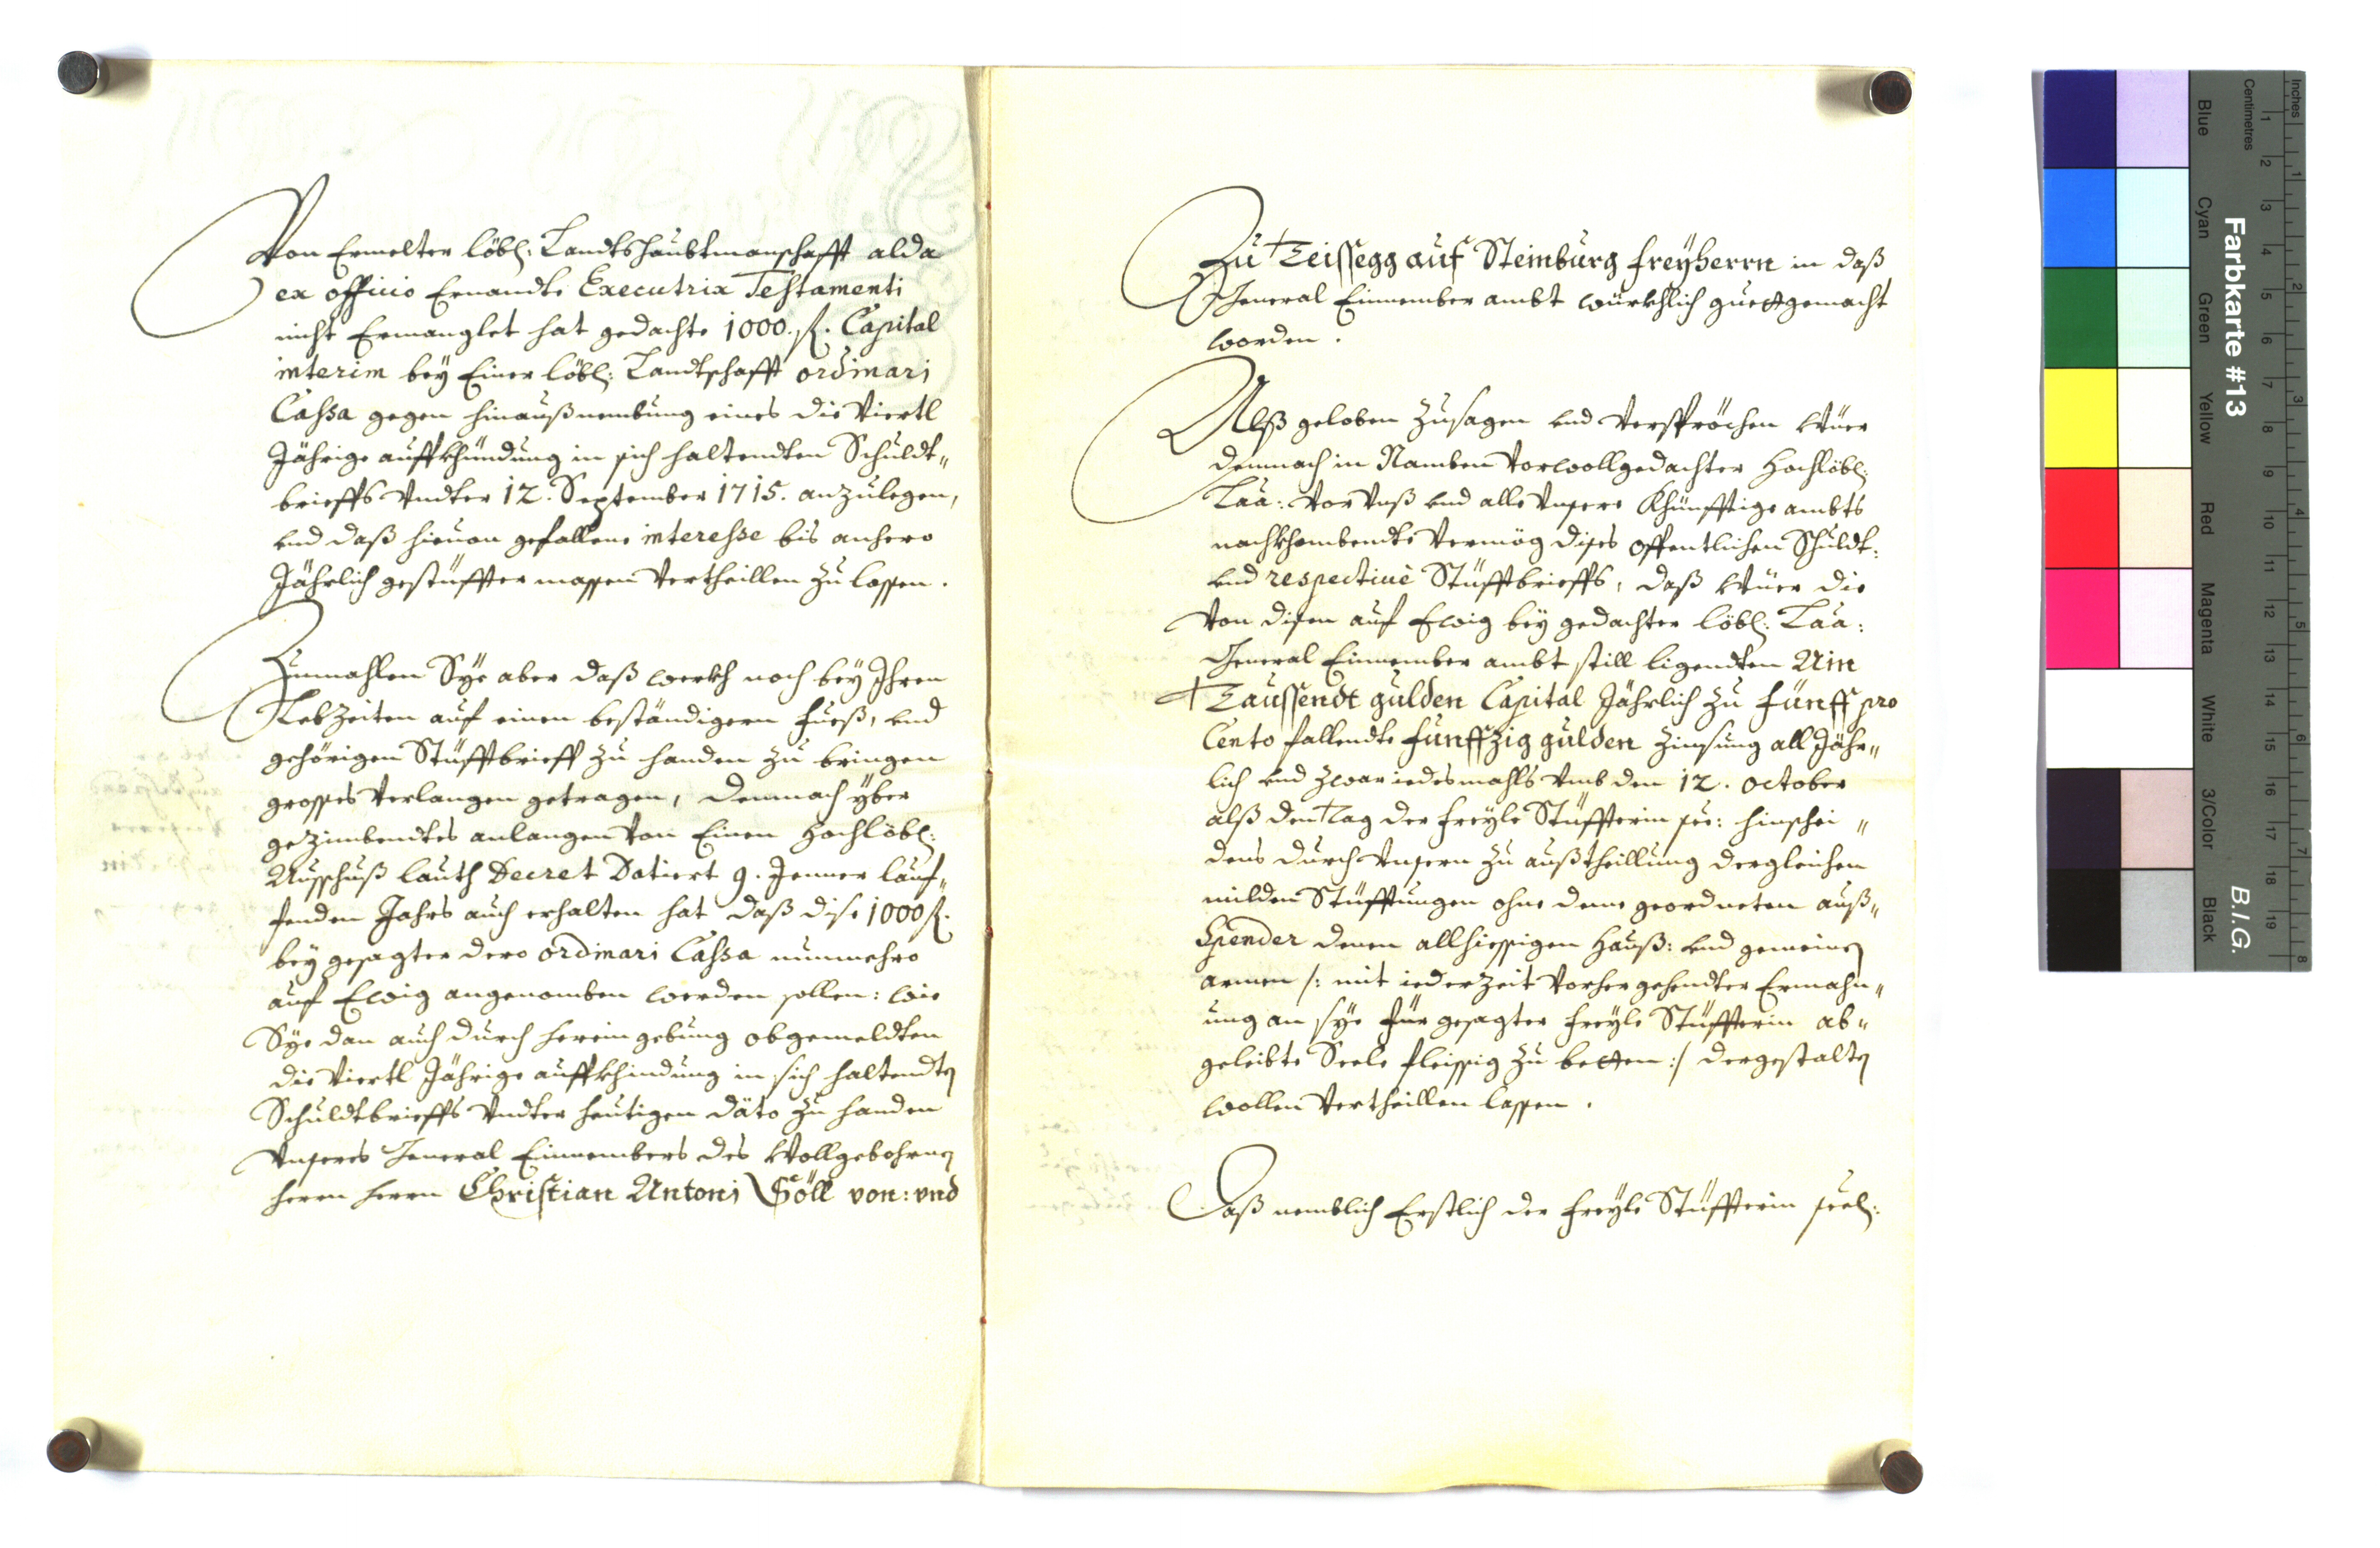 Von Ermelter löbl: Landtshaubtmanschafft alda
ex officio Ernandte Executrix Testamenti
nicht Ermanglet hat gedachte 1000. fl. Capital
interim bey Einer löbl: Landtschafft ordinari
Cassa gegen hinaußnembung eines die Viertl
Jährige auffkhündung in sich haltendten Schuldt„
brieffs Vndter 12. September 1715. anzulegen,
vnd daß hieuon gefallene interesse bis anhero
Jährlich gestüffter massen Vertheillen zu lassen.
Zumahlen Sye aber daß werkh noch bey Ihren
Lebzeiten auf einen beständigern fueß, vnd
gehörigen Stüfftbrieff zu handen zu bringen
grosses Verlangen getragen, demnach yber
gezimbendtes anlangen Von Einen Hochlöbl:
Ausschuß lauth Decret Datiert 9. Jenner lauf„
fenden Jahrs auch erhalten hat daß dise 1000 fl.
bey gesagter dero ordinari Cassa nunmehro
auf Ewig angenomben werden sollen: wie
Sye dan auch durch hereingebung obgemeldten
die Viertl Jährige auffkhindung in sich haltendten
Schuldtbrieffs Vndter heutigen dato zu handen
Vnseres General Einnembers des Wollgebohrnen
herrn herrn Christian Antoni Göll von: vnd
Zu Teissegg auf Steinburg freyherrn in daß
General Einnember ambt würkhlich guettgemacht
worden.
Alß geloben Zusagen vnd Verspröchen Wüer
demnach in Namben Vorwollgedachter Hochlöbl:
Laa: Vor Vnß vnd alle Vnsere Khünfftige ambts
nachkhombendte Vermög dises offentlichen Schuldt:
vnd respectiuè Stüfftbrieffs, daß Wüer die
Von disen auf Ewig bey gedachter löbl: Laa:
General Einnember ambt still ligendten Ain
Taussendt gulden Capital Jährlich zu fünff pro
Cento fallendte fünffzig gulden Zinsung all Jähr„
lich vnd zwar iedesmahls Vmb den 12. October
alß den Tag der freyle Stüffterin see: hinschei„
dens durch Vnsern zu außtheillung dergleichen
milden Stüfftungen ohne deme geordneten auß„
Spender denen allhiessigen Hauß: vnd gemeinen
armen /: mit ieder zeit Vorhergehendter Ermahn„
ung an sye für gesagter freyle Stüffterin ab„
geleibte Seele fleissig zu betten :/ dergestalten
wollen Vertheillen lassen.
Daß nemblich Erstlich der freyle Stüffterin seel:
Farbkarte #13
B.I.G.
Inches
Centimetres
Blue
Cyan
Green
Yellow
Red
Magenta
White
3/Color
Black
1 2 3 4 5 6 7 8 9 10 11 12 13 14 15 16 17 18 19
1 2 3 4 5 6 7 8